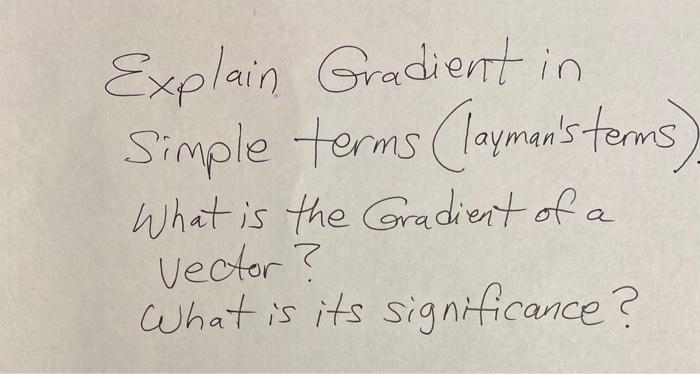 Explain Gradient in
Simple terms (layman's terms).
What is the Gradient of a
vector?
What is its significance?